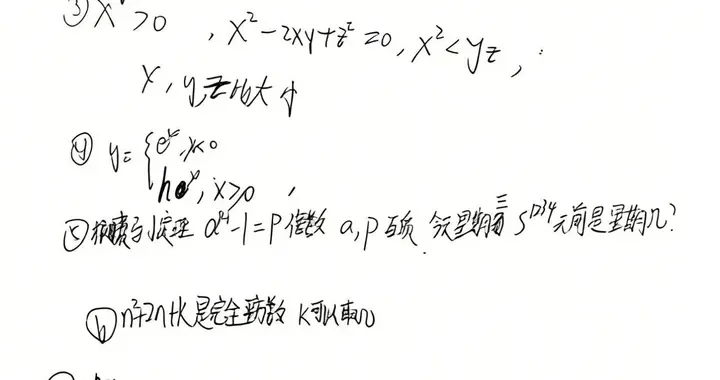 ③ x >0 , x²-2xy+z²=0, x²<yz,
x, y, z 比大小
④ y= { eˣ, x<0
, x≥0 ,
小定理 -1=P倍数 a,P互质 今天星期三 5¹²³⁴天前是星期几?
⑥ n²+2n+k是完全平方数 k可以取几